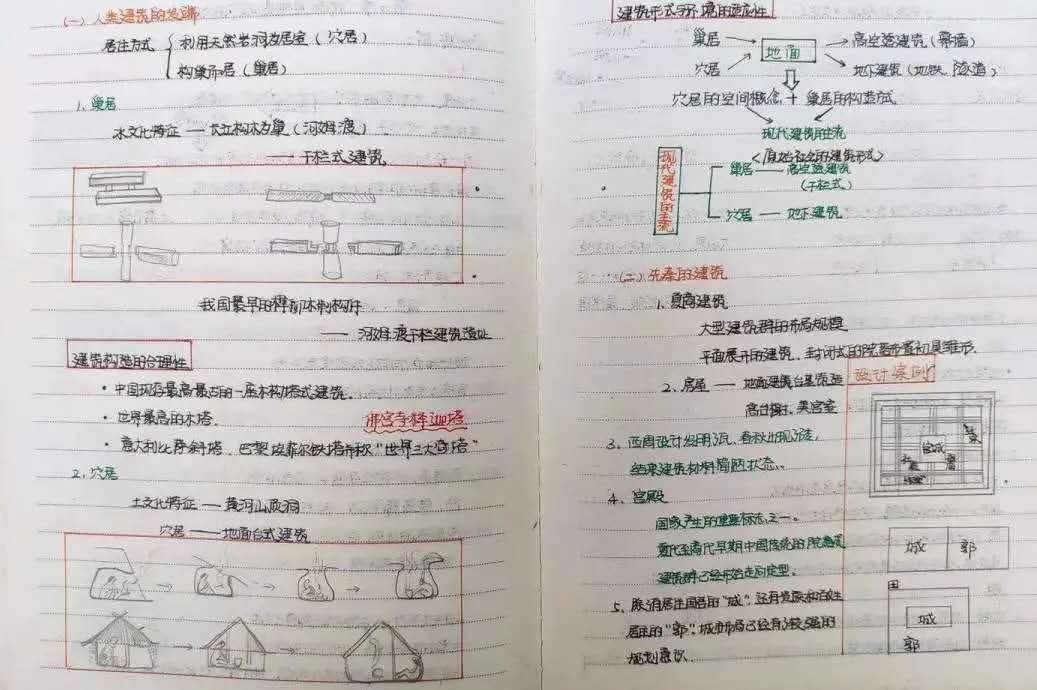 (一) 人类建筑的发端
居住方式 利用天然岩洞为居室 (穴居)
构巢而居 (巢居)
1. 巢居
水文化特征 — 长江构木为巢 (河姆渡)
— 干栏式建筑
我国最早的榫卯木制构件
— 河姆渡干栏建筑遗址
建筑构造的合理性
· 中国现存最高最古的一座木构塔式建筑.
· 世界最高的木塔. 佛宫寺释迦塔
· 意大利比萨斜塔. 巴黎埃菲尔铁塔并称"世界三大奇塔"
2. 穴居
土文化特征 — 黄河山顶洞
穴居 — 地面台式建筑
建筑形式与环境的适应性
巢居 地面 高空落建筑 (幕墙)
穴居 地下建筑 (地铁. 隧道)
穴居的空间概念 + 巢居的构造方式
现代建筑的主流
<原始社会的建筑形式>
现代建筑的主流
巢居 — 高空落建筑
(干栏式)
穴居 — 地下建筑
(二) 先秦的建筑
1. 夏商建筑
大型建筑群的布局规模
平面展开的建筑、封闭式的院落布置初具雏形.
2. 房屋 — 地面建筑台基筑造
高台榭、美宫室
3. 西周设计发明瓦, 春秋出现
结束建筑材料简陋状态.
4. 宫殿
国家产生的重要标志之一.
夏代至商代早期中国传统的院落式
建筑群已经开始走向定型.
5. 除消居住国君的"城", 还有发展和百姓
居住的"郭", 城市布局已经有了较强的
规划意识
设计案例
宫城
城 郭
城
郭